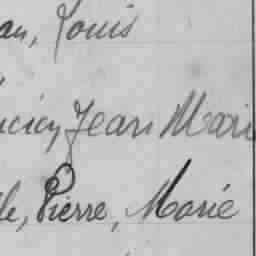 an, Louis
ucien Jean Mari
le, Pierre, Marie